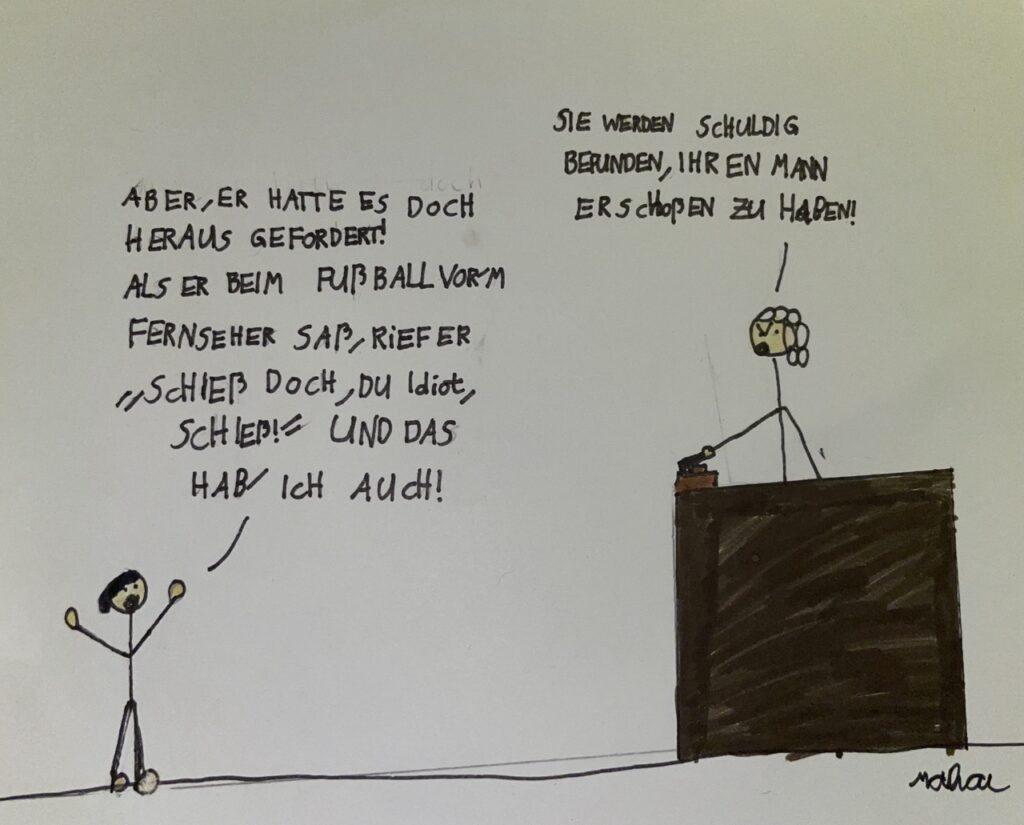 SIE WERDEN SCHULDIG
BEFUNDEN, IHREN MANN
ERSCHOßEN ZU HABEN!
ABER, ER HATTE ES DOCH
HERAUS GEFORDERT!
ALS ER BEIM FUßBALL VOR'M
FERNSEHER SAß, RIEF ER
„SCHIEß DOCH, DU Idiot,
SCHIEß!“ UND DAS
HAB' ICH AUCH!